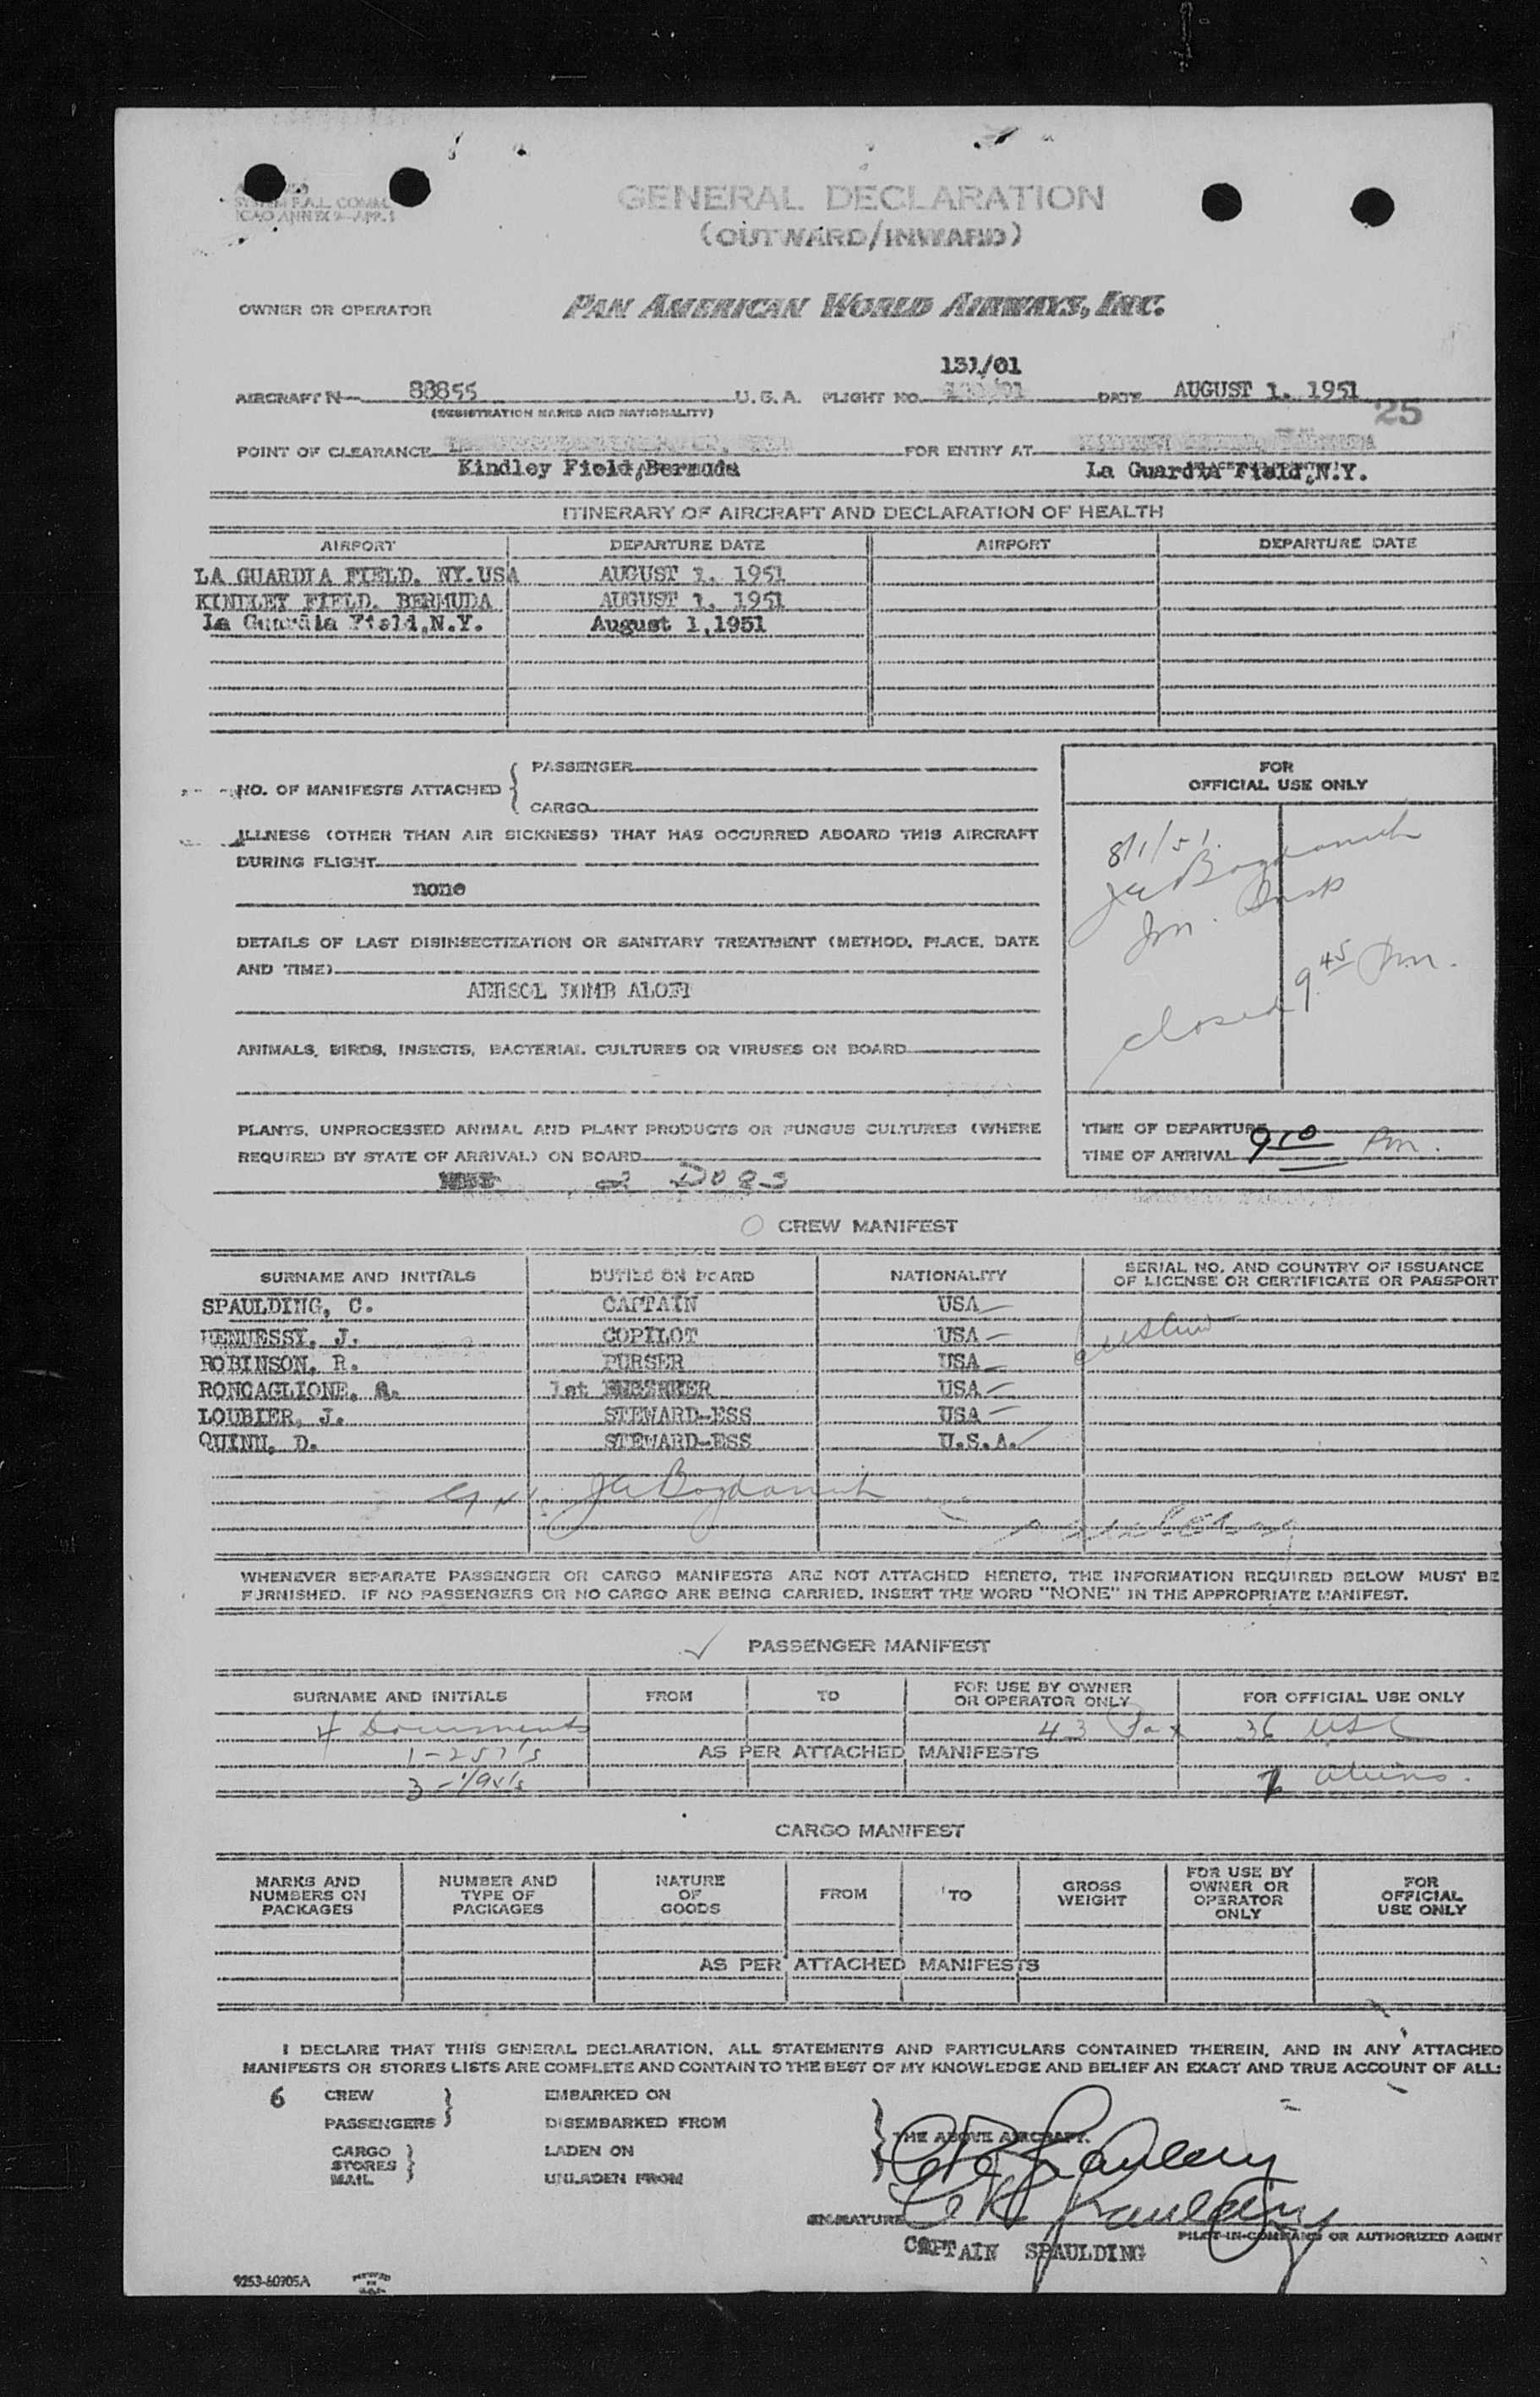 SYSTEM F.A.L. COMM.
ICAO ANNEX 9-APP. 1
GENERAL DECLARATION
(OUTWARD/INWARD)
OWNER OR OPERATOR PAN AMERICAN WORLD AIRWAYS, INC.
131/01
AIRCRAFT N- 88855 U.S.A. FLIGHT NO. DATE AUGUST 1. 1951
(REGISTRATION MARKS AND NATIONALITY)
25
POINT OF CLEARANCE FOR ENTRY AT
Kindley Field,Bermuda La Guardia Field,N.Y.
ITINERARY OF AIRCRAFT AND DECLARATION OF HEALTH
AIRPORT DEPARTURE DATE AIRPORT DEPARTURE DATE
LA GUARDIA FIELD. NY.USA AUGUST 1. 1951
KINDLEY FIELD. BERMUDA AUGUST 1. 1951
La Guardia Field,N.Y. August 1,1951
NO. OF MANIFESTS ATTACHED { PASSENGER
CARGO
FOR
OFFICIAL USE ONLY
ILLNESS (OTHER THAN AIR SICKNESS) THAT HAS OCCURRED ABOARD THIS AIRCRAFT
DURING FLIGHT
none
8/1/51
JA Bogdanich
Im. Insp
DETAILS OF LAST DISINSECTIZATION OR SANITARY TREATMENT (METHOD, PLACE, DATE
AND TIME)
AERSOL BOMB ALOFT
closed 9 45 Pm.
ANIMALS, BIRDS, INSECTS, BACTERIAL CULTURES OR VIRUSES ON BOARD
PLANTS, UNPROCESSED ANIMAL AND PLANT PRODUCTS OR FUNGUS CULTURES (WHERE
REQUIRED BY STATE OF ARRIVAL) ON BOARD
2 Dogs
TIME OF DEPARTURE
TIME OF ARRIVAL 9 10 Pm.
CREW MANIFEST
SURNAME AND INITIALS DUTIES ON BOARD NATIONALITY SERIAL NO. AND COUNTRY OF ISSUANCE
OF LICENSE OR CERTIFICATE OR PASSPORT
SPAULDING, C. CAPTAIN USA
HENNESSY, J. COPILOT USA
ROBINSON, R. PURSER USA
RONCAGLIONE, 1st USA
LOUBIER, J. STEWARD-ESS USA
QUINN, D. STEWARD-ESS U.S.A.
JA Bogdanich
WHENEVER SEPARATE PASSENGER OR CARGO MANIFESTS ARE NOT ATTACHED HERETO, THE INFORMATION REQUIRED BELOW MUST BE
FURNISHED. IF NO PASSENGERS OR NO CARGO ARE BEING CARRIED, INSERT THE WORD "NONE" IN THE APPROPRIATE MANIFEST.
PASSENGER MANIFEST
SURNAME AND INITIALS FROM TO FOR USE BY OWNER
OR OPERATOR ONLY FOR OFFICIAL USE ONLY
4 Documents 43 Pax 36 USC
1-257's AS PER ATTACHED MANIFESTS
3- 7 aliens.
CARGO MANIFEST
MARKS AND
NUMBERS ON
PACKAGES
NUMBER AND
TYPE OF
PACKAGES
NATURE
OF
GOODS
FROM
TO
GROSS
WEIGHT
FOR USE BY
OWNER OR
OPERATOR
ONLY
FOR
OFFICIAL
USE ONLY
AS PER ATTACHED MANIFESTS
I DECLARE THAT THIS GENERAL DECLARATION, ALL STATEMENTS AND PARTICULARS CONTAINED THEREIN, AND IN ANY ATTACHED
MANIFESTS OR STORES LISTS ARE COMPLETE AND CONTAIN TO THE BEST OF MY KNOWLEDGE AND BELIEF AN EXACT AND TRUE ACCOUNT OF ALL:
6 CREW EMBARKED ON
PASSENGERS DISEMBARKED FROM
THE ABOVE AIRCRAFT.
CARGO LADEN ON
STORES
MAIL UNLADEN FROM
C R Spaulding
SIGNATURE C R Spaulding
PILOT-IN-COMMAND OR AUTHORIZED AGENT
CAPTAIN SPAULDING
9253-60705A